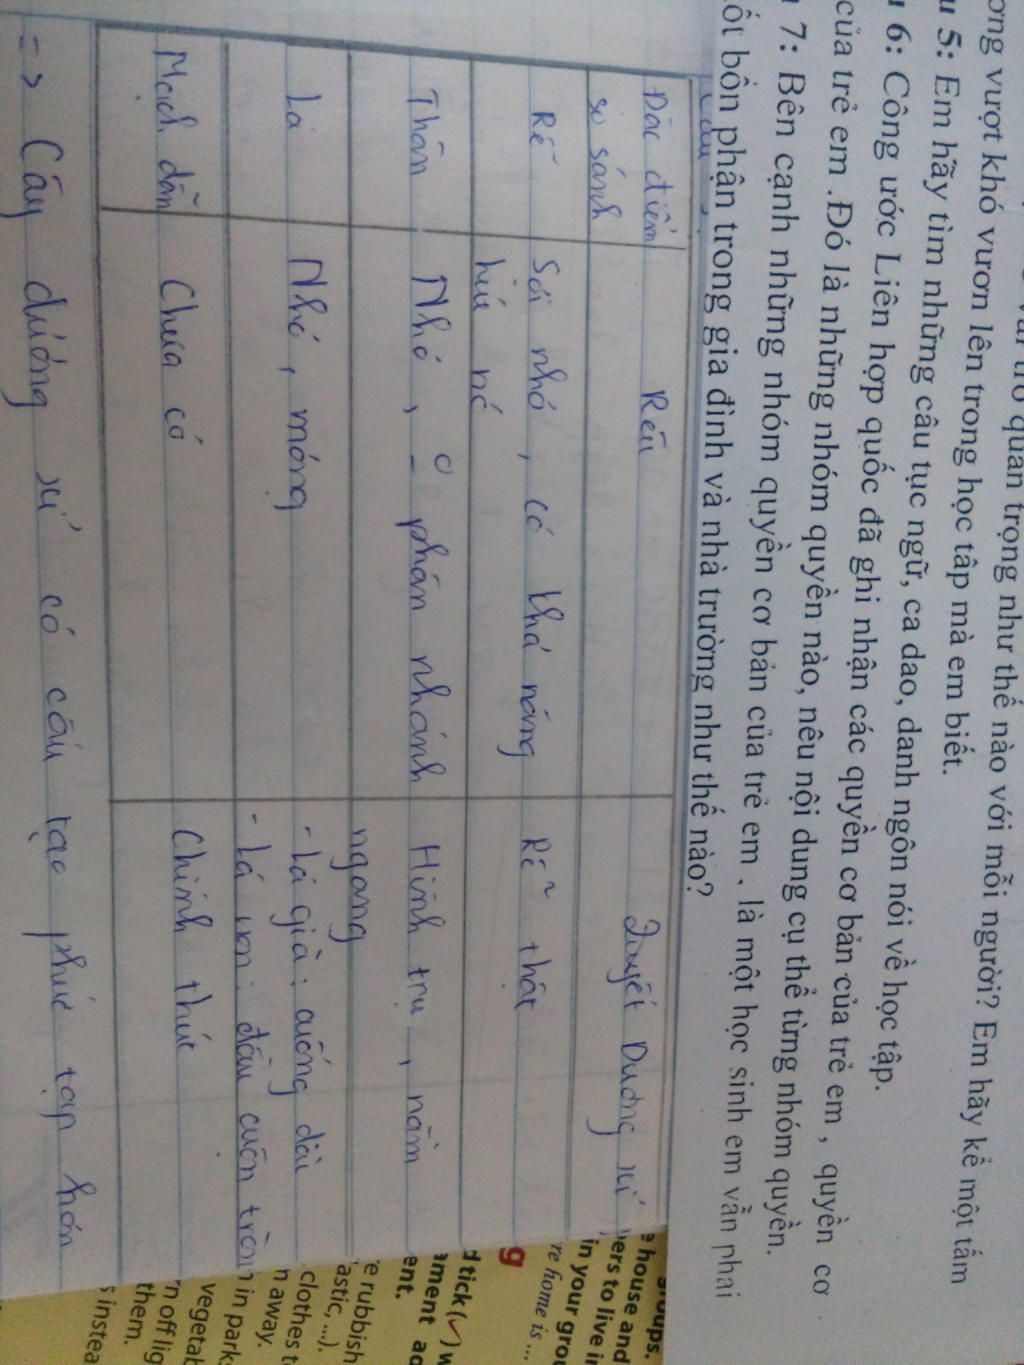 quan trọng như thế nào với mỗi người? Em hãy kể một tấm
ong vượt khó vươn lên trong học tập mà em biết.
u 5: Em hãy tìm những câu tục ngữ, ca dao, danh ngôn nói về học tập.
u 6: Công ước Liên hợp quốc đã ghi nhận các quyền cơ bản của trẻ em , quyền cơ
của trẻ em .Đó là những nhóm quyền nào, nêu nội dung cụ thể từng nhóm quyền.
7: Bên cạnh những nhóm quyền cơ bản của trẻ em , là một học sinh em vần phai
ốt bổn phận trong gia đình và nhà trường như thế nào?
Đặc điểm
so sánh
Rêu
Quyết Dương xỉ
Rễ
Sợi nhỏ, có khả năng
hút nc
Rễ thật
Thân
Nhỏ, 0 phân nhánh
Hình trụ, nằm
ngang
Lá
Nhỏ, mỏng
- Lá già: cuống dài
- Lá non: đầu cuộn tròn
Mạch dẫn
Chưa có
Chính thức
=> Cây dương xỉ có cấu tạo phức tạp hơn
groups.
e house and
ers to live in
in your grou
re home is ...
g
d tick (✓) w
ment ac
ent.
e rubbish
astic, ...).
clothes t
n away.
in park
vegetab
rn off lig
them.
s instea